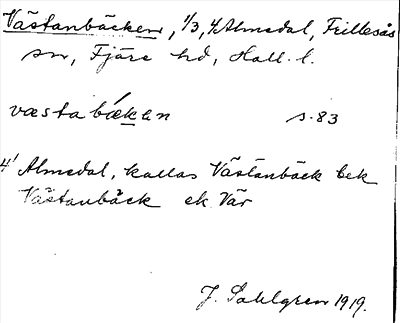 Västanbäcken, 1/3, 4 Almedal, Frillesås
sn, Fjäre hd, Hall. l.
væstabækan s. 83
4' Almedal, kallas Västanbäck bek
Västanbäck ek. Vär
J. Sahlgren 1919.